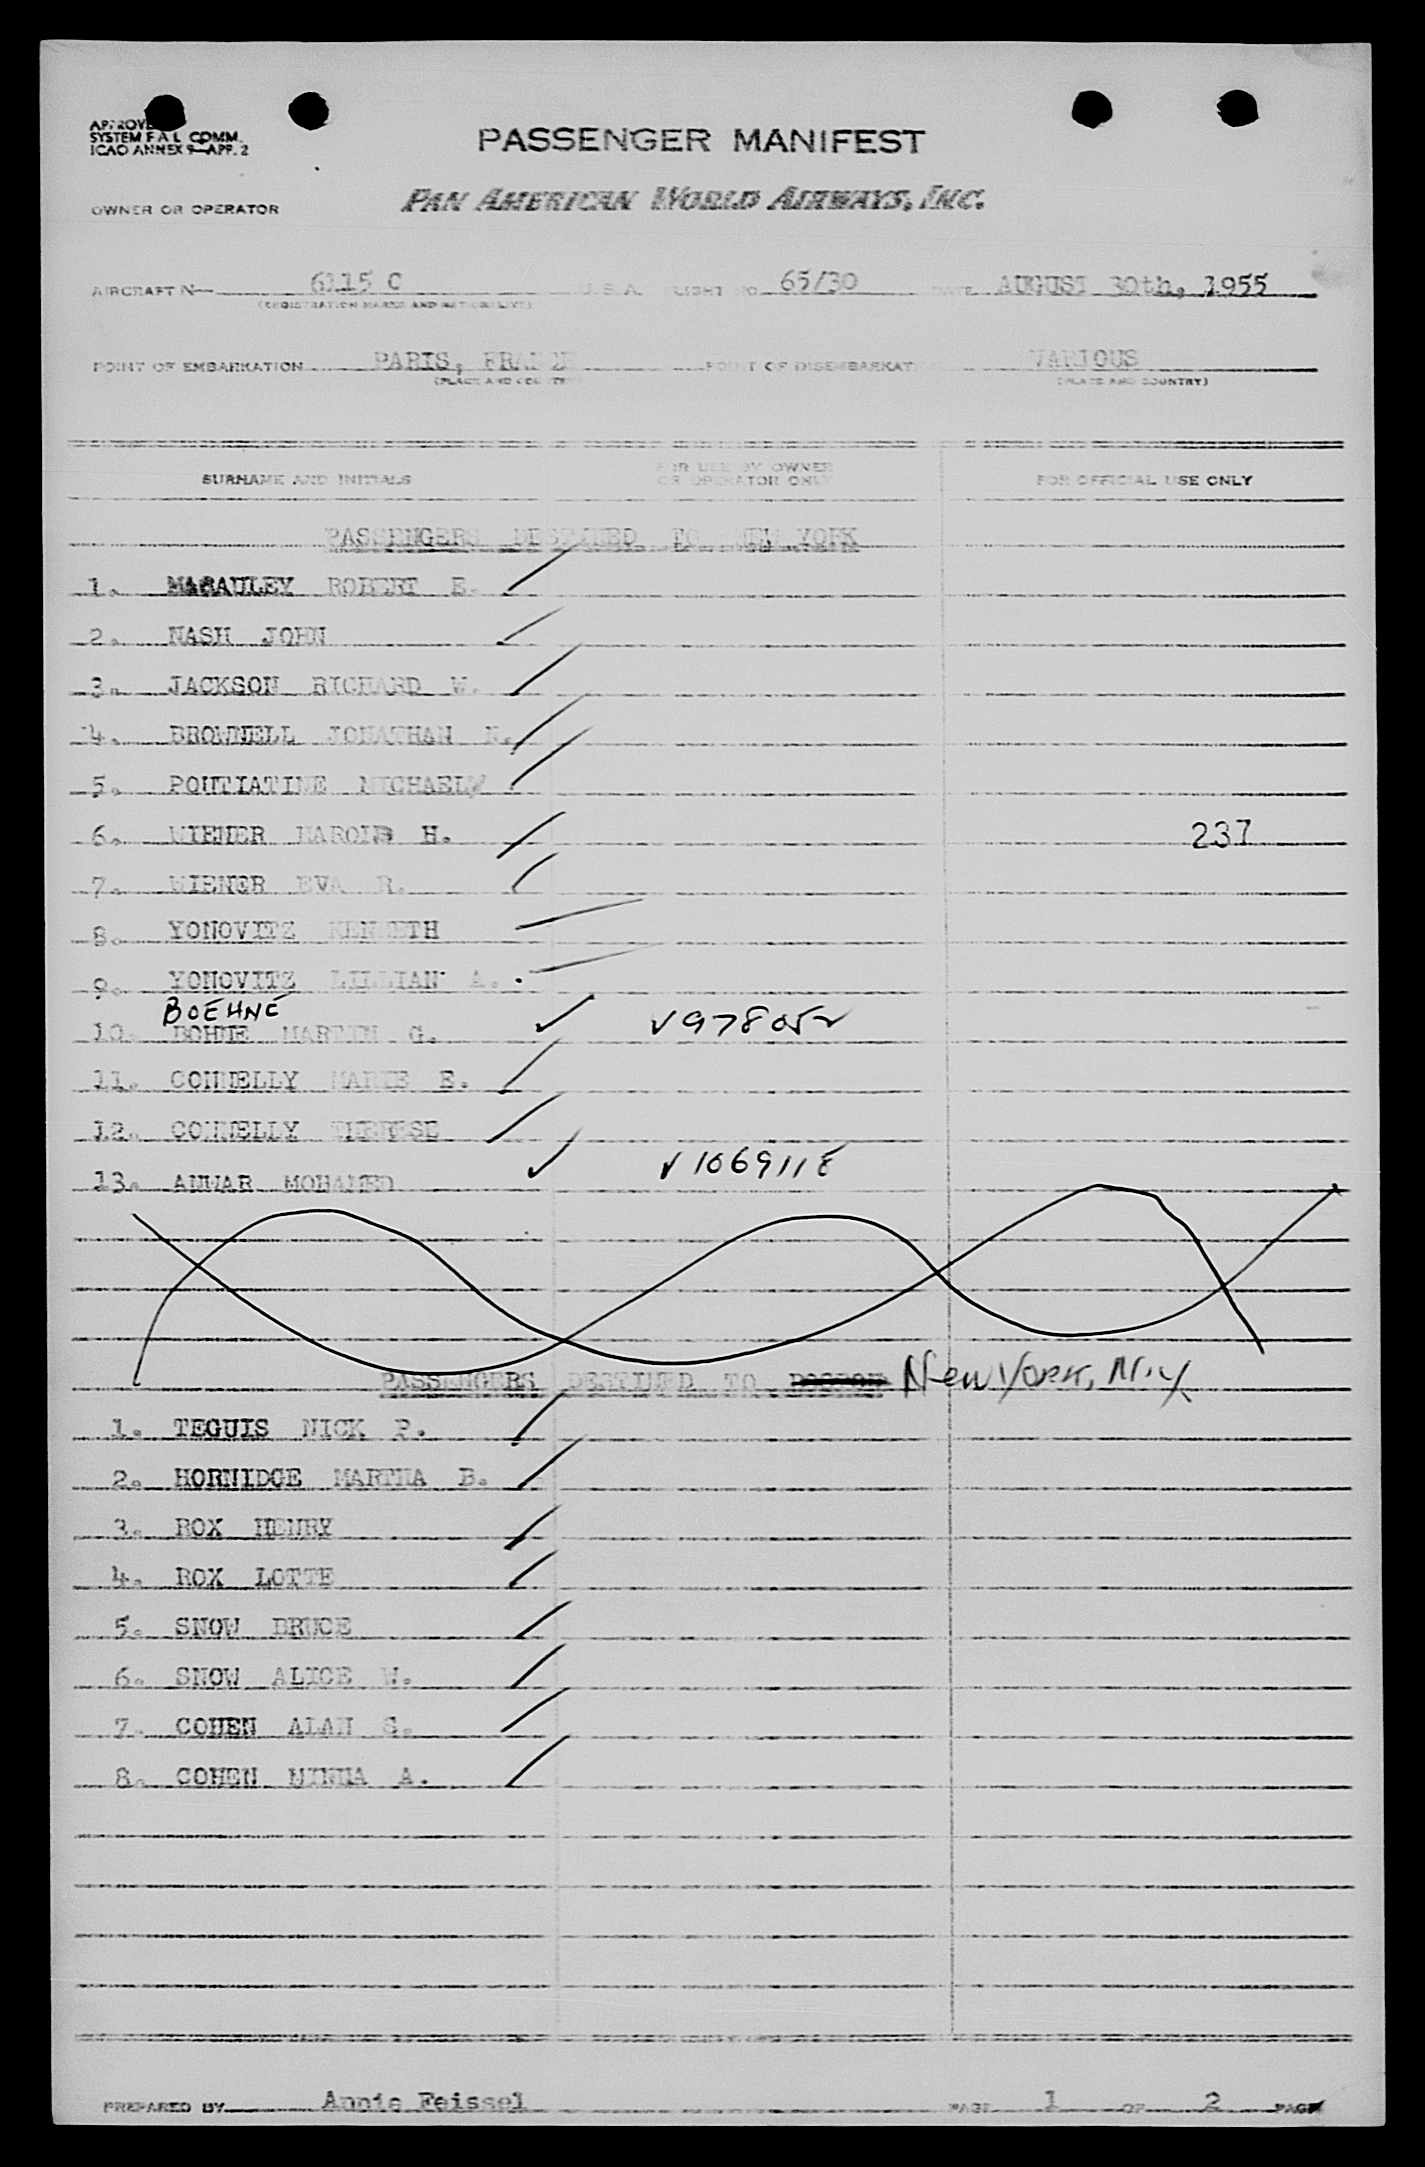 APPROVE
SYSTEM F A L COMM.
ICAO ANNEX 9—APP. 2
PASSENGER MANIFEST
OWNER OR OPERATOR PAN AMERICAN WORLD AIRWAYS, INC.
AIRCRAFT N— 6115 C U.S.A. FLIGHT NO 65/30 DATE AUGUST 30th, 1955
(REGISTRATION MARKS AND NATIONALITY)
POINT OF EMBARKATION PARIS, FRANCE POINT OF DISEMBARKAT VARIOUS
(PLACE AND COUNTRY) (PLACE AND COUNTRY)
SURNAME AND INITIALS FOR USE BY OWNER OR OPERATOR ONLY FOR OFFICIAL USE ONLY
PASSENGERS DESTINED TO NEW YORK
1. MACAULEY ROBERT E.
2. NASH JOHN
3. JACKSON RICHARD W.
4. BROWNELL JONATHAN N.
5. POUTIATINE MICHAEL
6. WIENER HAROLD H. 237
7. WIENER EVA R.
8. YONOVITZ KENNETH
9. YONOVITZ LILLIAN A.
BOEHNE
10. BOHNE MARTIN G. ✓97805
11. CONNELLY MARIE E.
12. CONNELLY THERESE
13. ANWAR MOHAMED ✓1069118
PASSENGERS DESTINED TO BOSTON New York, N.Y.
1. TEGUIS NICK P.
2. HORNIDGE MARTHA B.
3. ROX HENRY
4. ROX LOTTE
5. SNOW BRUCE
6. SNOW ALICE W.
7. COHEN ALAN S.
8. COHEN MINNA A.
PREPARED BY Annie Feissel PAGE 1 OF 2 PAGE